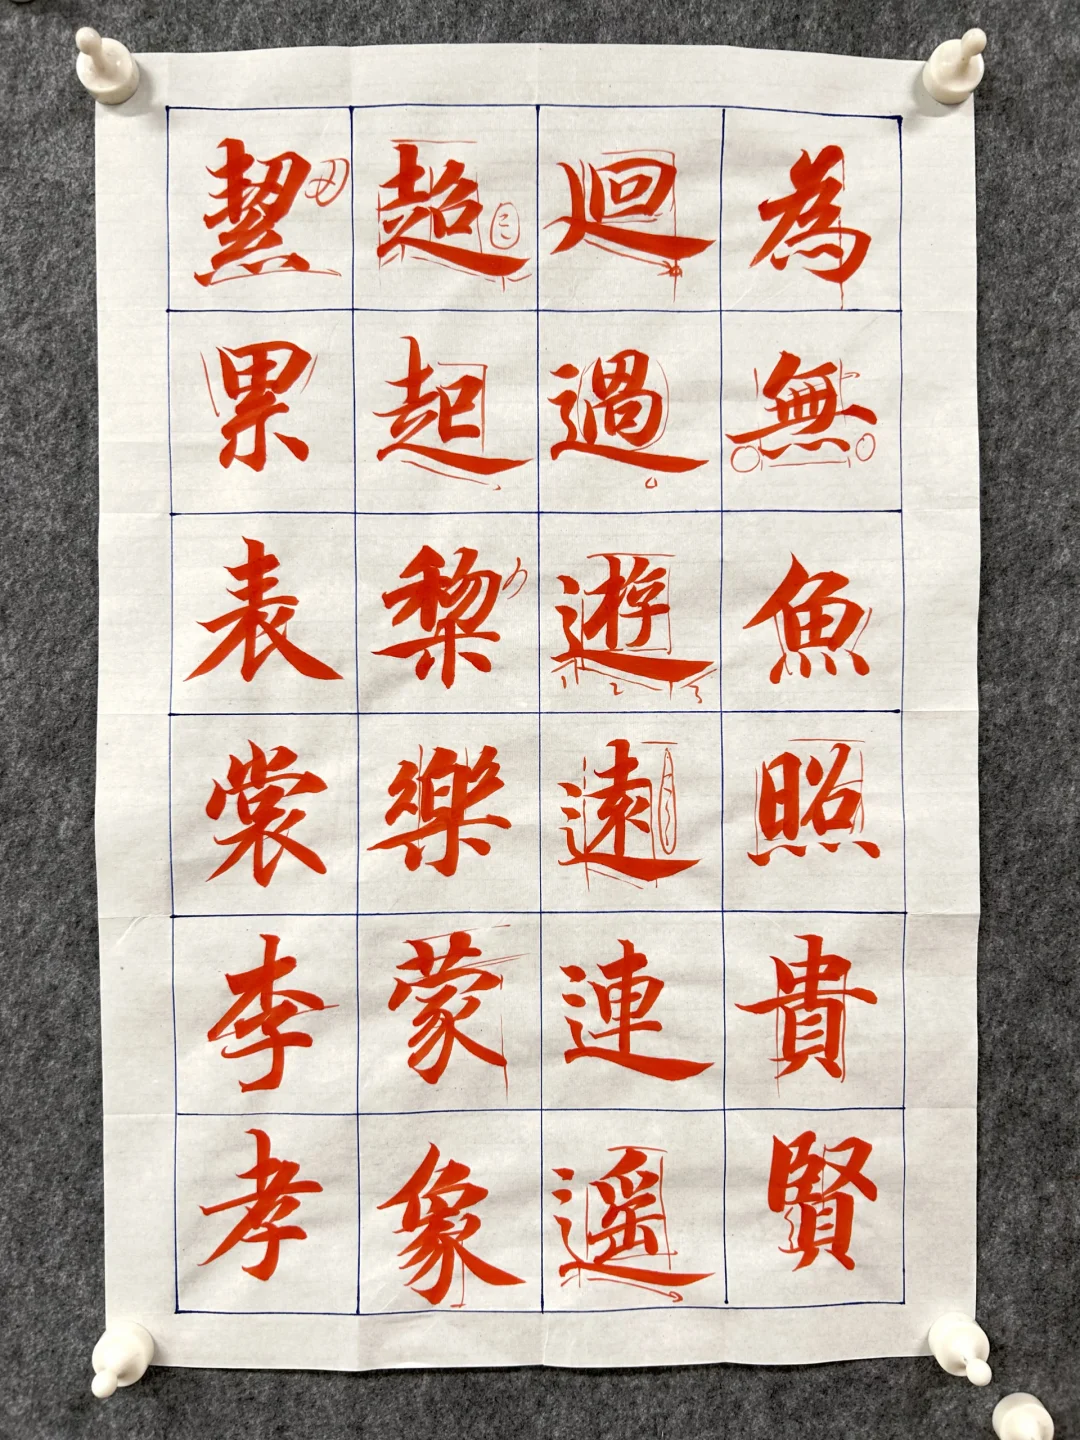 為無魚照貴賢
迴過遊遠連遥
超起黎樂蒙象
絜累表裳李孝